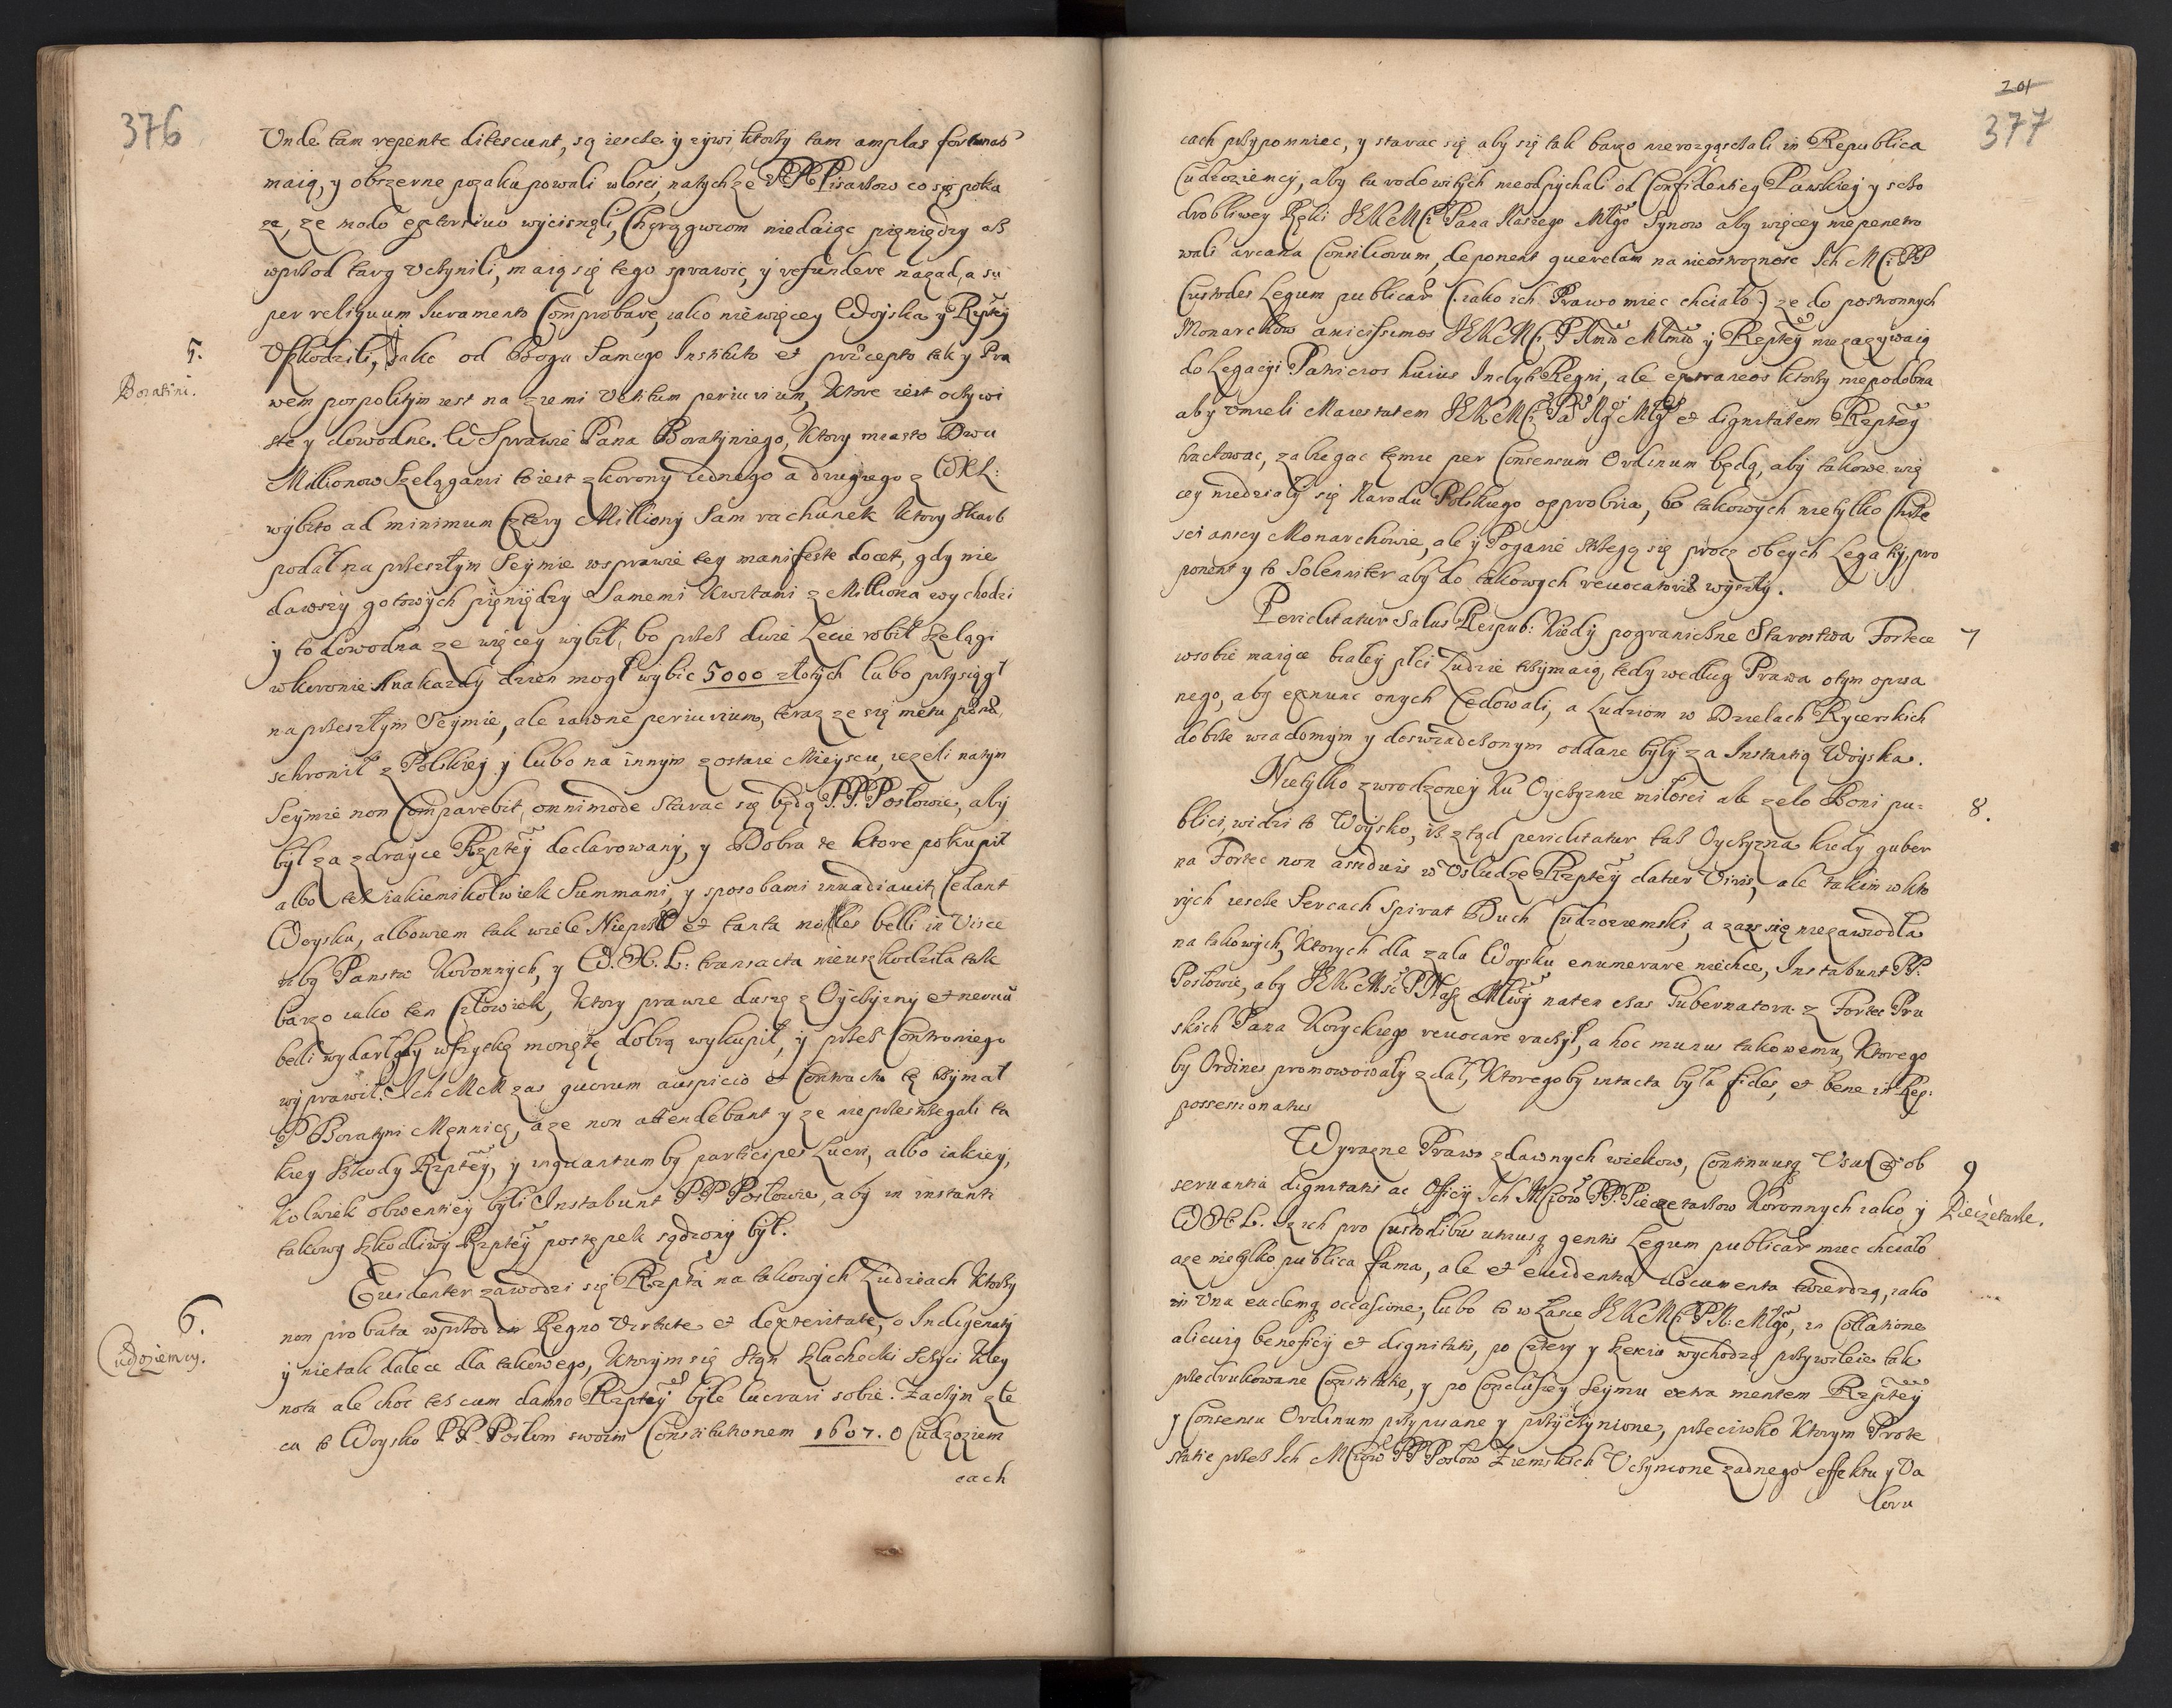 376
Unde tam repente ditescunt, są iescze y zywi ktorzy tam amplas fortunas
maią, y obszerne pozakupowali włosci, na tych ze PP Pisarzow co się poka
ze, ze modo extorsivo wycisnęli, Chorągwiom niedaiąc pieniędzy asz
wprzod targ uczynili, maią się tego sprawic, y refundere nazad, a su
per reliquum Juramento Comprobare, iako niewięcey Woyska y Rzptey
5.
Uszkodzili, iako od Boga Samego Instituto et præcepto tak y Pra
Boratini.
wem pospolitym iest na ziemi Vetitum periurium, ktore iest oczywi
ste y dowodne. W Sprawie Pana Boratyniego, ktory miasto Dwu
Millionow Szelągami to iest z korony iednego a drugiego z WXL:
wybito ad minimum Cztery Milliony Sam rachunek ktory Skarb
podał na przeszłym Seymie w sprawie tey manifeste docet, gdy nie
dawszy gotowych pięniędzy Samemi Kwitami z Milliona wychodzi
y to dowodna ze więcey wybił, bo przez dwie Lecie robił szelągi
w koronie na kazdy dzien mogł wybic 5000 złotych lubo przysiągł
na przeszłym Seymie, ale iawne periurium, teraz ze się metu pænæ
schronił z Polskiey y lubo na innym zostaie Mieyscu, iezeli na tym
Seymie non Comparebit, omnimode starac się będą P.P. Posłowie, aby
był za zdrayce Rzptey declarowany, y Dobra te ktore pokupił
albo tesz iakiemikolwiek Summami, y sposobami inuadiauit, Cedant
Woysku, albowiem tak wiele Nieprzł et tanta moles belli in Visce
ribg Panstw Koronnych, y W.X.L: transacta nieuszkodziła tak
barzo iako ten Człowiek, ktory prawie duszę z Oyczyzny et neruū
belli wydarł gdy wszytkę monętę dobrą wykupił, y przesz Contro niego
wyprawił. Ich MciM zas quorum auspicio et Contractu tę trzymał
P Boratyni Mennicę, aze non attendebant y ze nieprzestrzegali ta
kiey szkody Rzptey, y inquantum by participes Lucri, albo iakiey,
kolwiek obwentiey byli Instabunt P.P Posłowie, aby in instanti
takowy szkodliwy Rzptey postępek sądzony był.
6.
Cudzoziemcy.
Euidenter zawodzi się Rzpta na takowych Ludziach ktorzy
non probata wprzod in Regno Virtute et dexteritate, o Indigenaty
y nietak dalece dla takowego, ktorym się stan szlachecki Sczyci kley
notu ale choc tesz cum damno Rzptey byle lucrari sobie. Zaczym zle
ca to Woysko P.P. Posłom swoim Constitutionem 1607. o Cudzoziem
cach
201
377
cach przypomniec, y starac się aby się tak barzo nierozgęsczali in Republica
Cudzoziemcy, aby tu rodowitych nieodpychali od Confidentiey Panskiey y scho
drobliwey Ręki JEKMCi Pana Naszego Młgo Synow aby więcey niepenetro
wali arcana Consiliorum, deponent querelam na nieostroznosc Ich MCi PP
Custodes Legum publicar (iako ich Prawo miec chciało) ze do postronnych
Monarchow amicissimos JEKMCi P Nmu Młmu y Rzptey niezazywaią
do Legacyi Patricios huius Inclyti Regni, ale extraneos ktorzy niepodobna
aby umieli Maiestatem JEKMCi Pa Ng Młg et dignitatem Rzptey
tractowac, zabiegac temu per Consensum Ordinum będą, aby takowe wię
cey niedziały się Narodu Polskiego opprobria, bo takowych nietylko Chrze
scianscy Monarchowie, ale y Poganie strzegą się przez obcych Legaty, pro
ponent y to Solenniter aby do takowych reuocatoriæ wyszły.
Periclitatur Salus Reipub: kiedy pograniczne Starostwa Fortece
7
w sobie maiące białey płci Ludzie trzymaią, tedy według Prawa o tym opisa
nego, aby exnunc onych Cedowali, a Ludziom w Dziełach Rycerskich
dobrze wiadomym y doswiadczonym oddane były za Instantią Woyska.
Nietylko z wrodzoney ku Oyczyznie miłosci ale zelo Boni pu=
8.
blici, widzi to Woysko, isz ztąd periclitatur tasz Oyczyzna kiedy guber
na Fortec non assiduis w Usłudze Rzptey datur Viris, ale takim w kto
rych iescze Sercach spirat Duch Cudzoziemski, a zasz się niezawiodła
na takowych, ktorych dla zalu Woysku enumerare niechce, Instabunt PP.
Posłowie, aby JEKMsc P Nasz Młwy na ten czas Gubernatora z Fortec Pru
skich Pana Koryckiego reuocare raczył, a hoc munus takowemu, ktorego
by Ordines promowowały zdał, ktoregoby intacta była fides, et bene in Rep:
possessionatus
Wyrazne Prawo z dawnych wiekow, Continuusq Usus et ob
9
seruantia dignitatis ac Officij Ich Mciow PP. Pieczetarzow Koronnych iako y
Pieczętarze.
WXL. iz ich pro Custodibus utriusq gentis Legum publicar miec chciało
aze nietylko publica fama, ale et euidentia documenta twierdzą, iako
in una eademq occasione, lubo to w Łasce JEKMCi P.N. Młgo, in Collatione
alicuig beneficij et dignitatis, po Cztery y szescia wychodzą przywileie tak
przedrukowane Constitutie, y po Conclusiey Seymu extra mentem Rzptey
y Consensu Ordinum przypisane y przyczynione, przeciwko ktorym Prote
statie przesz Ich Mciow PP Posłow Ziemskich Uczynione zadnego effektu y Va
loru